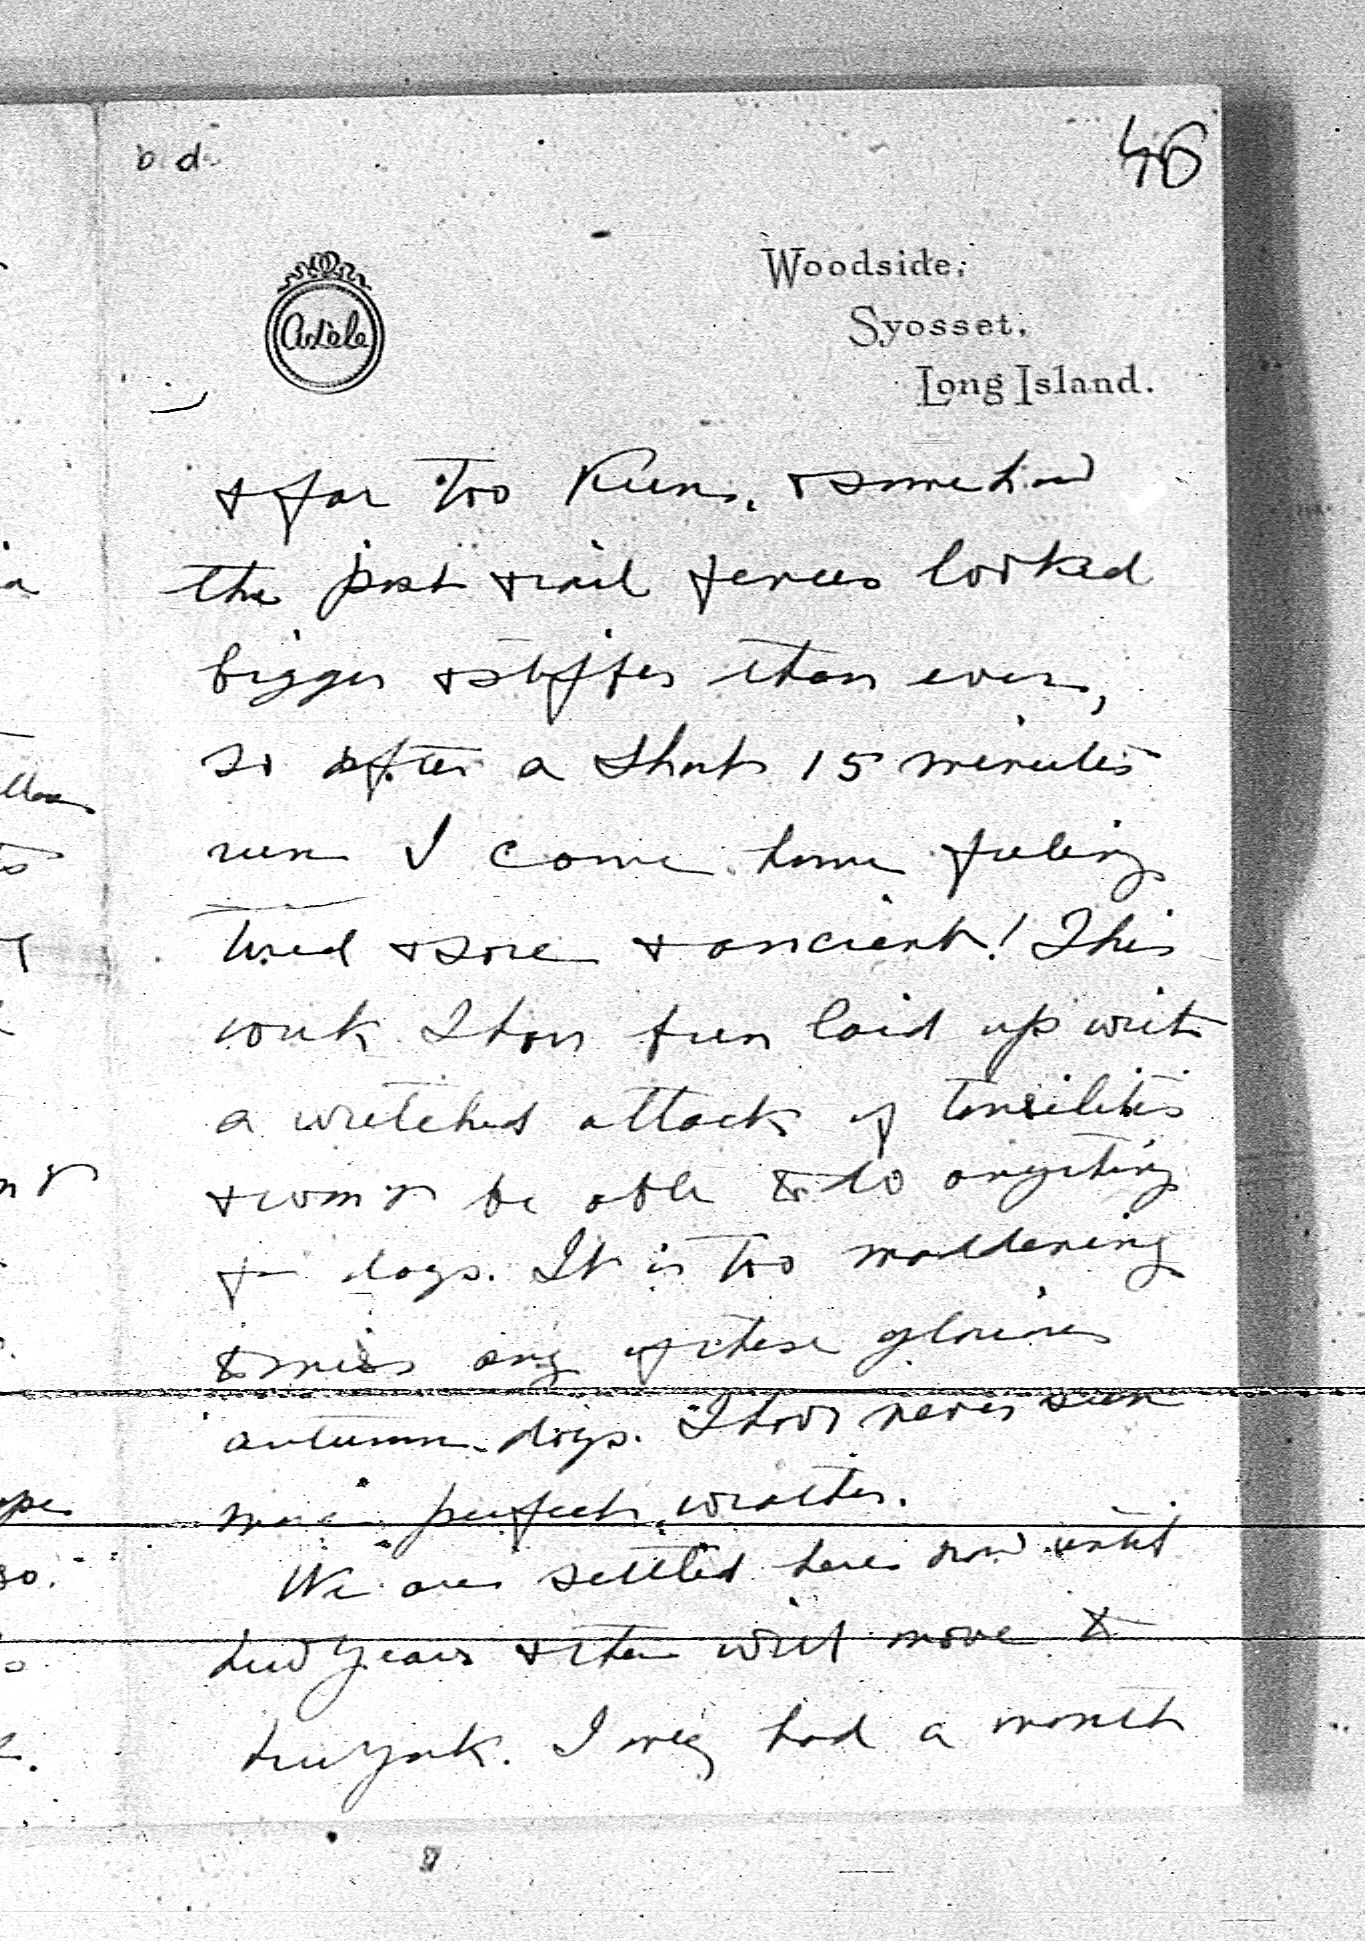 b d
46
Adèle
Woodside,
Syosset,
Long Island.
& far too keen, & somehow
the post & rail fences looked
bigger & stiffer than ever,
so after a short 15 minutes
run I came home feeling
tired & sore & ancient! This
week I have been laid up with
a wretched attack of tonsilitis
& won't be able to do anything
for days. It is too maddening
to miss any of these glorious
autumn days. I have never seen
more perfect weather.
We are settled here now until
New Years & then will move to
New York. I only had a month